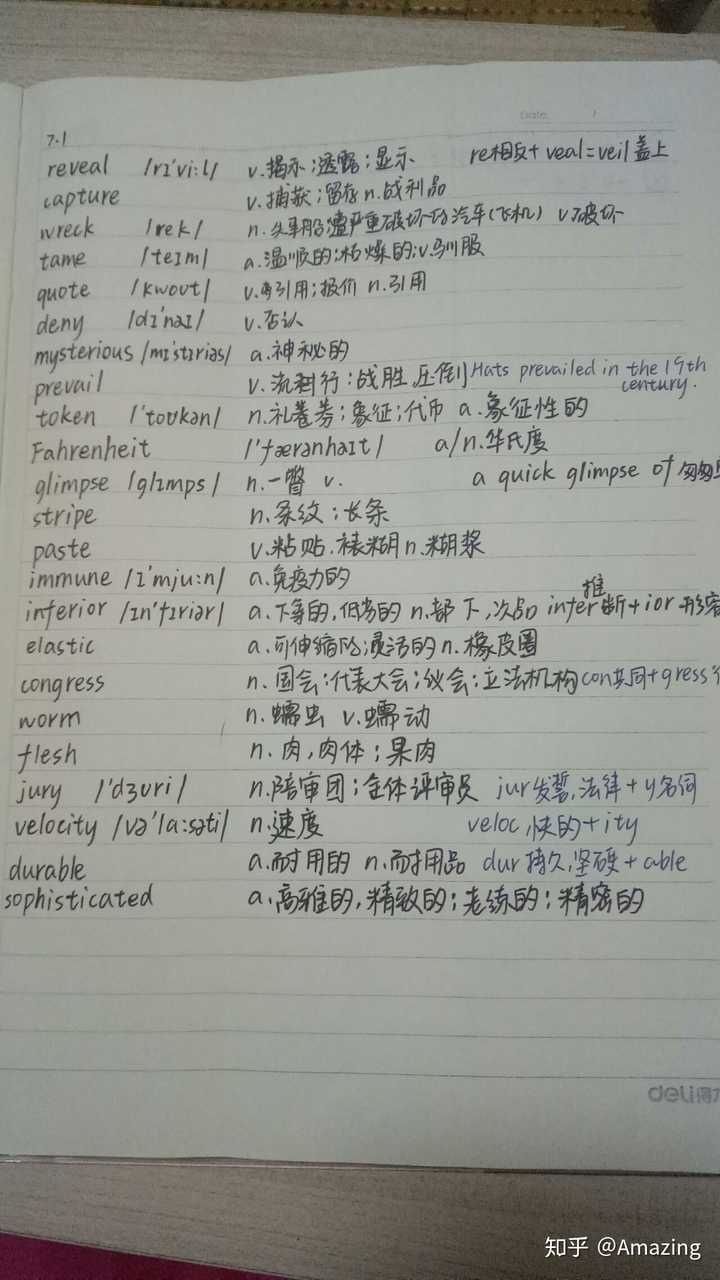 Date
7.1
reveal /rɪ'vi:l/ v.揭示;透露;显示 re相反+veal=veil盖上
capture v.捕获;留存 n.战利品
wreck /rek/ n.失事船;遭严重破坏的汽车(飞机) v.破坏
tame /teɪm/ a.温顺的;枯燥的;v.驯服
quote /kwoʊt/ v.引用;报价 n.引用
deny /dɪ'naɪ/ v.否认
mysterious /mɪ'stɪriəs/ a.神秘的
prevail v.流行;战胜.压倒 Hats prevailed in the 19th century.
token /'toʊkən/ n.礼券;象征;代币 a.象征性的
Fahrenheit /'færənhaɪt/ a/n.华氏度
glimpse /glɪmps/ n.一瞥 v. a quick glimpse of 匆匆
stripe n.条纹;长条
paste v.粘贴.裱糊 n.糊浆
immune /ɪ'mju:n/ a.免疫力的
inferior /ɪn'fɪriər/ a.下等的,低劣的 n.部下,次品 infer推断+ior 形容
elastic a.可伸缩的;灵活的 n.橡皮圈
congress n.国会;代表大会;议会;立法机构 con共同+gress
worm n.蠕虫 v.蠕动
flesh n.肉,肉体;果肉
jury /'dʒʊri/ n.陪审团;全体评审员 jur发誓,法律+y名词
velocity /və'lɑ:səti/ n.速度 veloc,快的+ity
durable a.耐用的 n.耐用品 dur持久,坚硬+able
sophisticated a.高雅的,精致的;老练的;精密的
deli得力
知乎 @Amazing